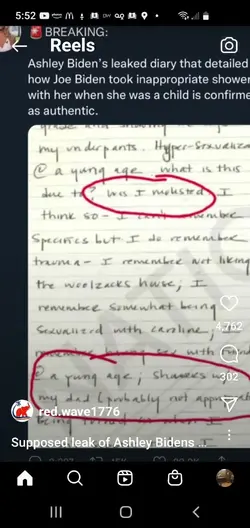 5:52
BREAKING:
Reels
Ashley Biden's leaked diary that detailed
how Joe Biden took inappropriate shower
with her when she was a child is confirme
as authentic.
my underpants. Hyper-Sexualiza
@ a young age what is this
due to? Was I molested. I
think so - I can't remember
Specifics but I do remember
trauma - I remember not liking
the woolzacks house, I
remember somewhat being
sexualized with caroline,
@ a young age; showers w
my dad (probably not appro
being
4,762
302
red.wave1776
Supposed leak of Ashley Bidens ...